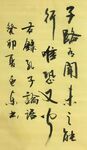 子路有聞未之能
行唯恐又聞
右錄孔子論語
癸卯夏